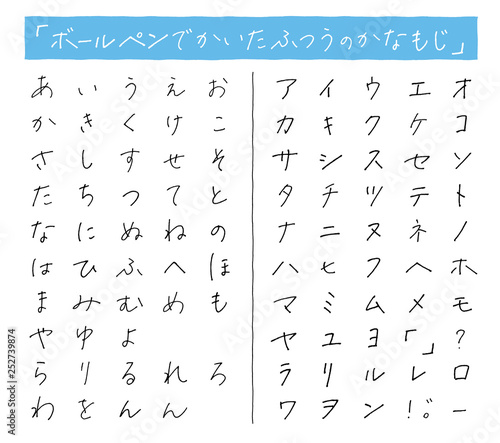 「ボールペンでかいたふつうのかなもじ」
あ い う え お
か き く け こ
さ し す せ そ
た ち つ て と
な に ぬ ね の
は ひ ふ へ ほ
ま み む め も
や ゆ よ
ら り る れ ろ
わ を ん ん
ア イ ウ エ オ
カ キ ク ケ コ
サ シ ス セ ソ
タ チ ツ テ ト
ナ ニ ヌ ネ ノ
ハ ヒ フ ヘ ホ
マ ミ ム メ モ
ヤ ユ ヨ 「」 ?
ラ リ ル レ ロ
ワ ヲ ン !。゛ ー
Adobe Stock | #252739874